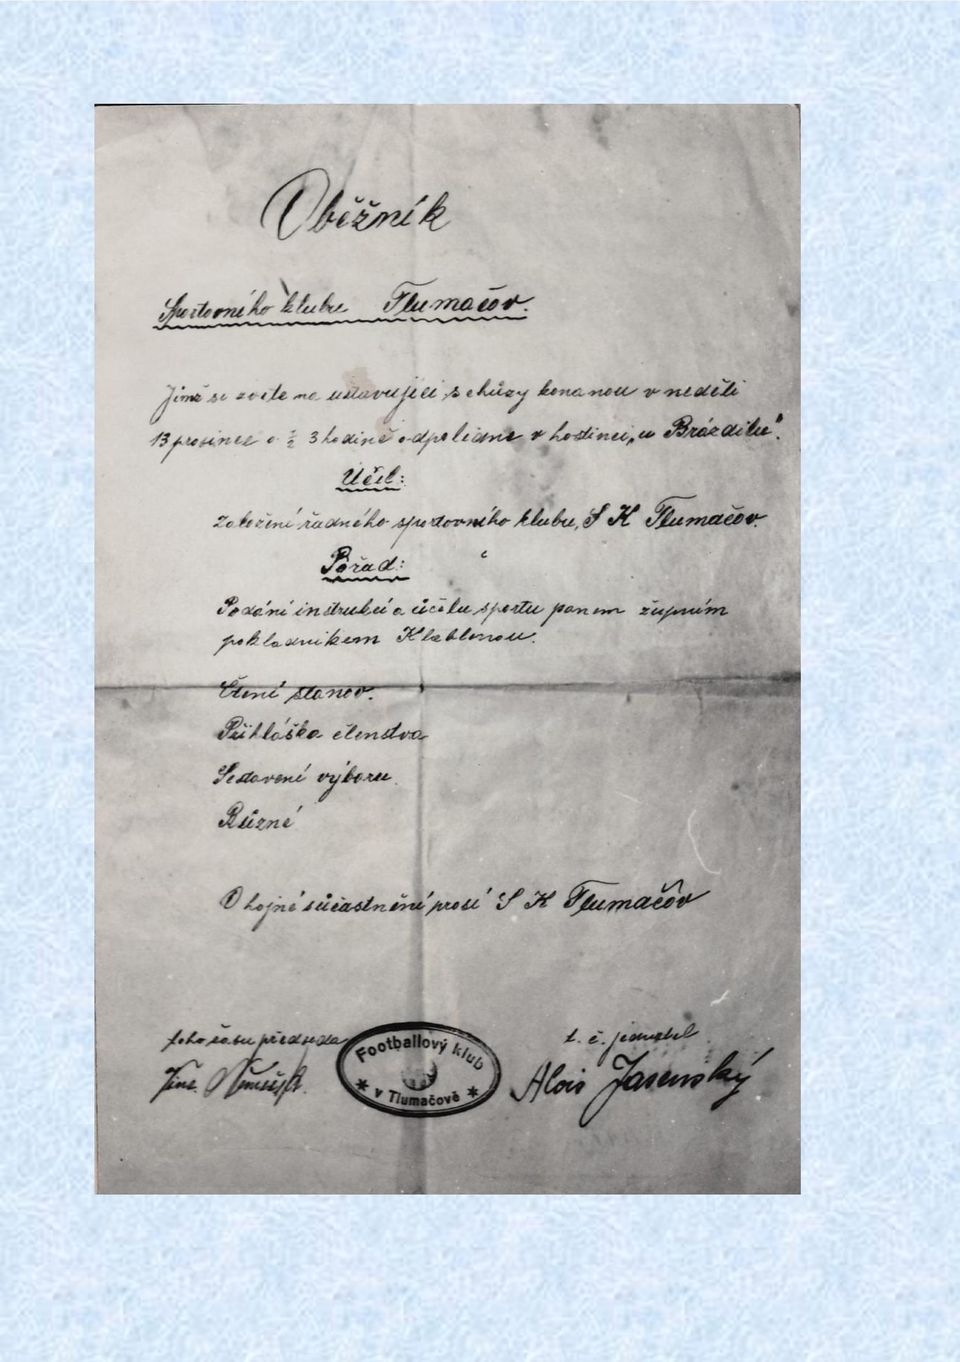 Oběžník
Sportovného klubu Tlumačov.
Jímž se zvete na ustavující schůzy konanou v neděli
13 prosince o ½ 3 hodině odpoledne v hostinci „u Brázdilů".
Účel:
Založení řadného sportovního klubu, S K Tlumačov.
Pořad:
Podání instrukcí a účelu sportu panem župním
pokladníkem Klablenou.
Čtení stanov.
Přihláška členstva
Sestavení výboru.
Různé
O hojné súčastnění prosí S K Tlumačov
toho času předseda
t. č. jednatel
Footballový klub
v Tlumačově
Alois Jasenský